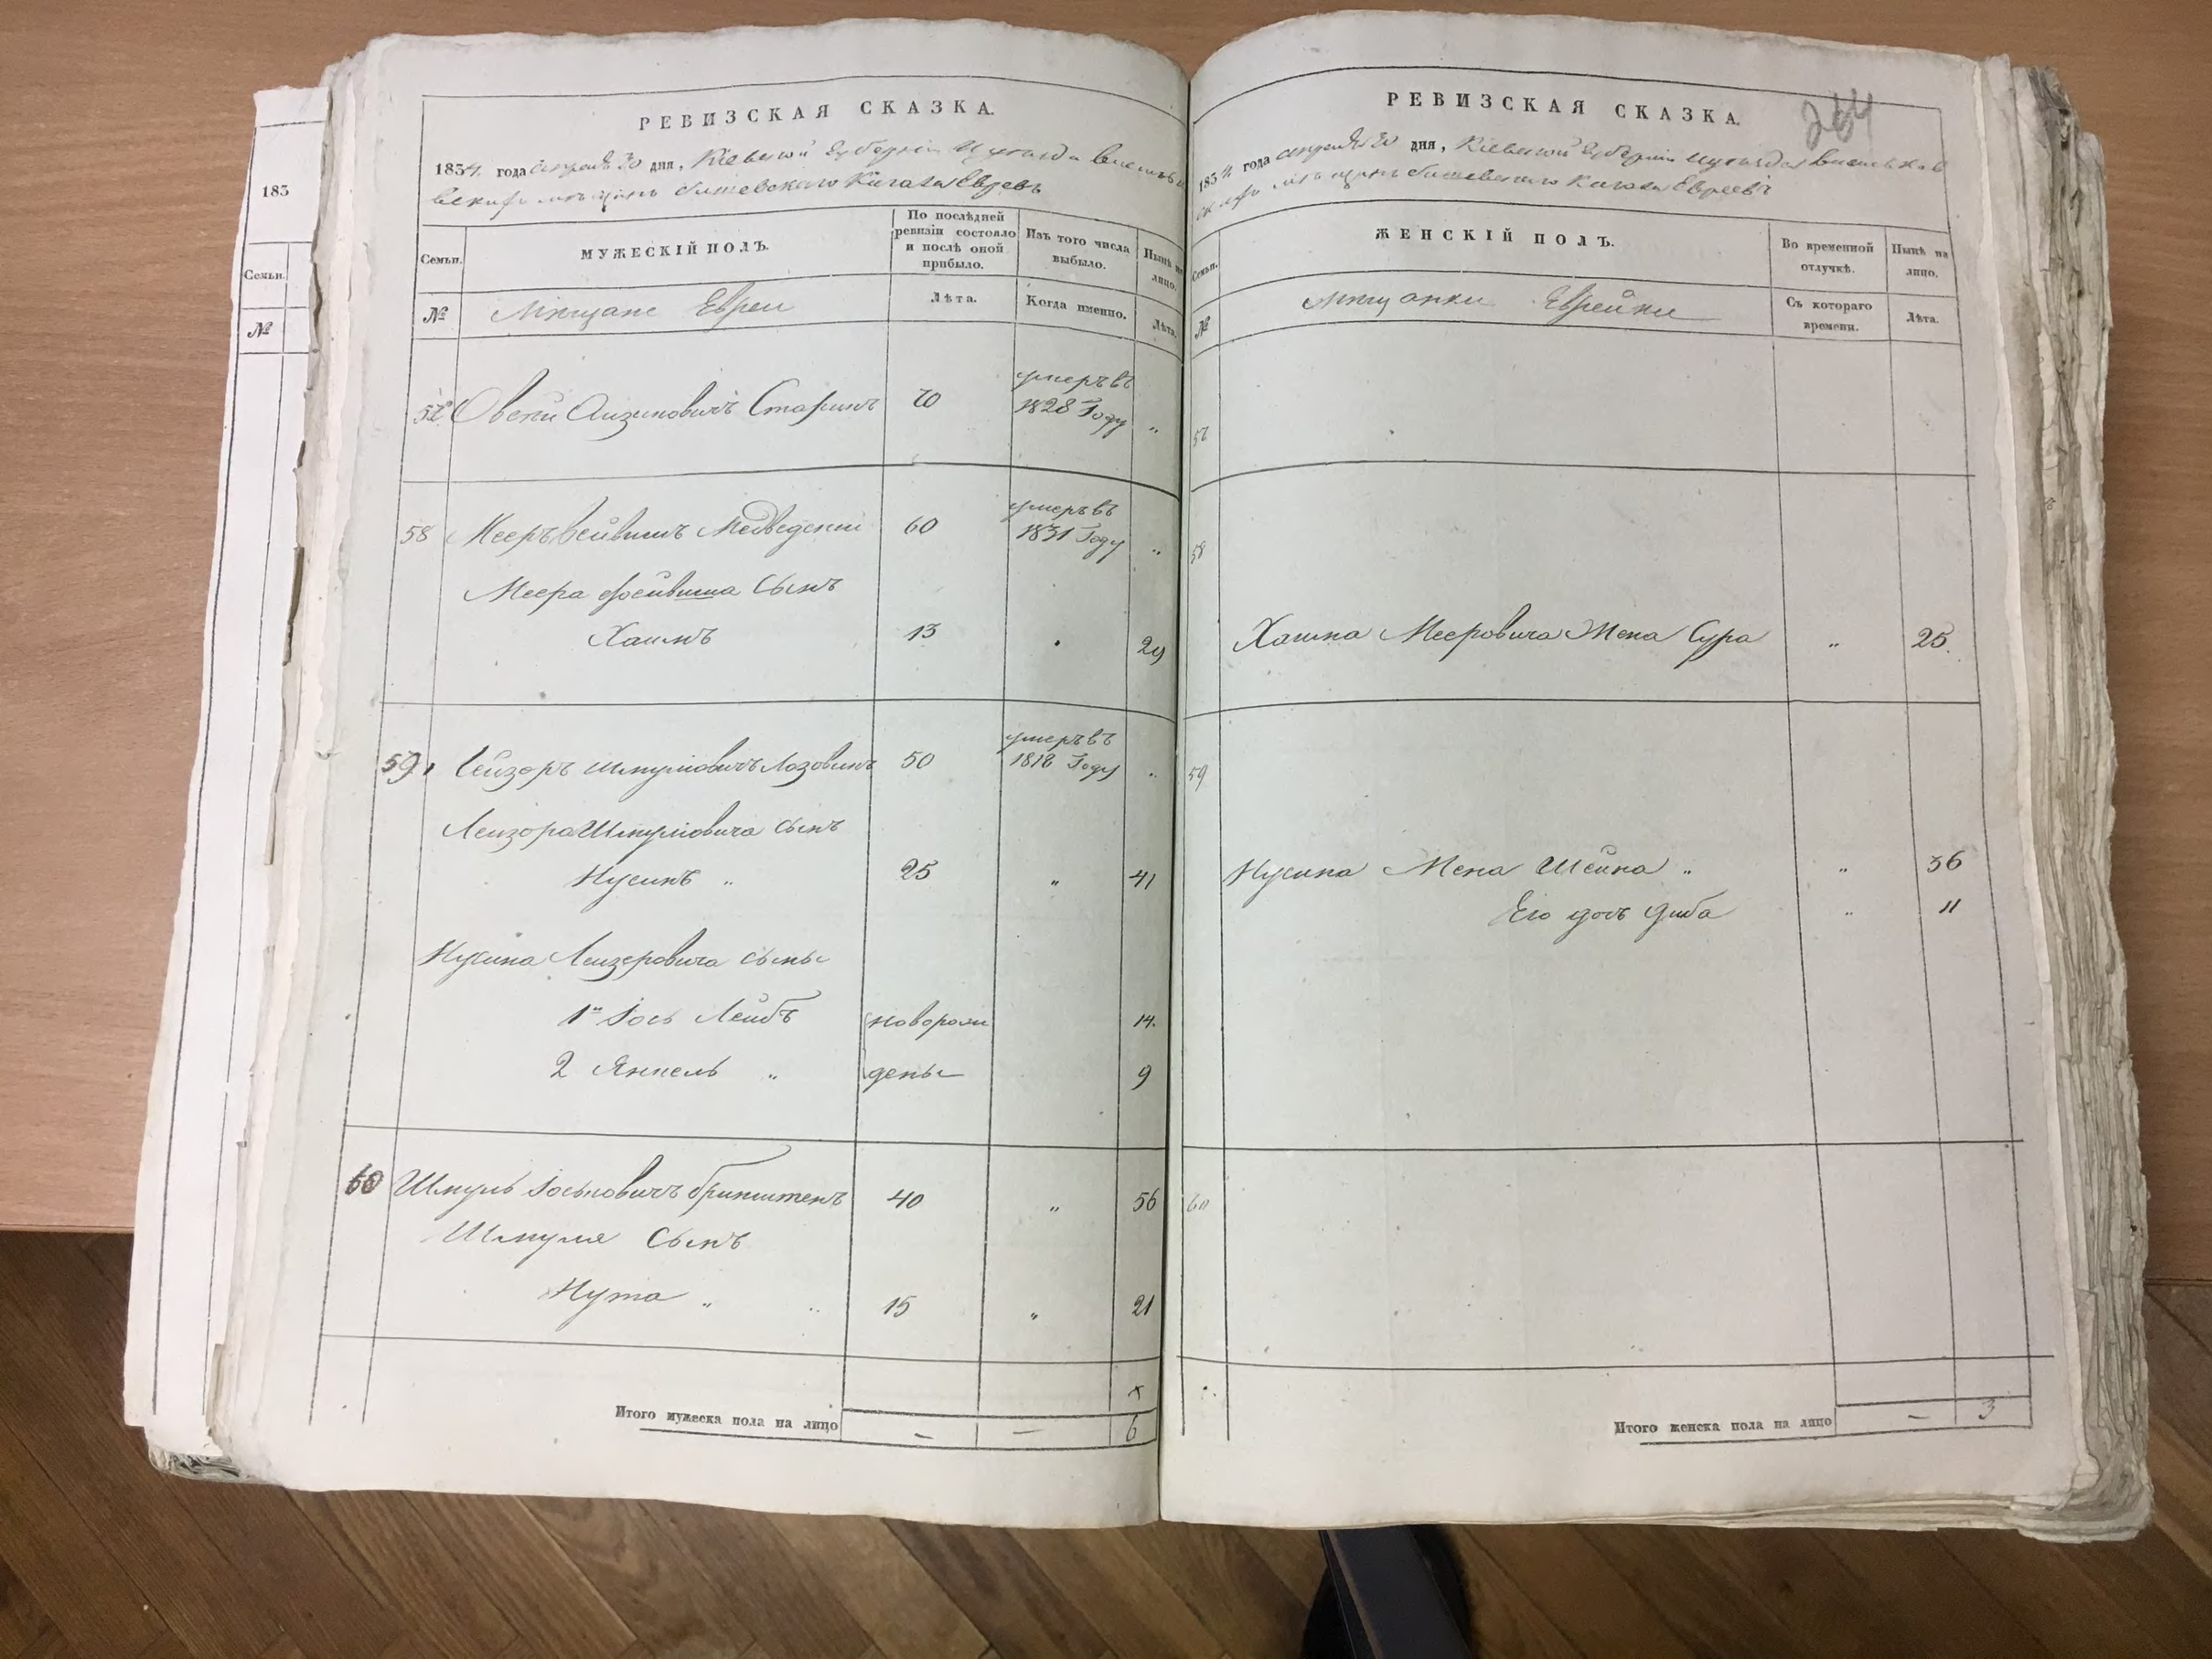 183
Семьи.
№
РЕВИЗСКАЯ СКАЗКА.
1834 года апреля 30 дня, Кіевской Губерніи
мѣщанъ Кагала Евреевъ
Семьи.
МУЖЕСКІЙ ПОЛЪ.
По послѣдней ревизіи состояло и послѣ оной прибыло.
Изъ того числа выбыло.
Нынѣ на лицо.
№
Мѣщане Евреи
Лѣта.
Когда именно.
Лѣта.
умеръ въ
57 Старинъ 70 1828 Году „
умеръ въ
58 Мееръ Медведскій 60 1831 Году „
Меера сынъ
Хаимъ 13 29
умеръ въ
59 Лейзоръ Шмулiовичъ Лозовикъ 50 1818 Году „
Лейзора Шмулiовича сынъ
Нусинъ „ 25 „ 41
Нусина Лейзеровича сыны
1й Іось Лейбъ новорож 14.
2 Янкель „ дены 9
60 Шмуль Іосьповичъ Бринштенъ 40 „ 56
Шмуля Сынъ
Нута „ 15 „ 21
х
Итого мужеска пола на лицо — — 6
РЕВИЗСКАЯ СКАЗКА.
264
1834 года апреля 30 дня, Кіевской Губерніи
мѣщанъ Кагала Евреевъ
Семьи.
ЖЕНСКІЙ ПОЛЪ.
Во временной отлучкѣ.
Нынѣ на лицо.
№
Мѣщанки Еврейки
Съ котораго времени.
Лѣта.
57
58
Хаима Мееровича Жена Сура „ 25.
59
Нусина Жена Шейна „ „ 36
Его дочь Диба „ 11
60
Итого женска пола на лицо — 3